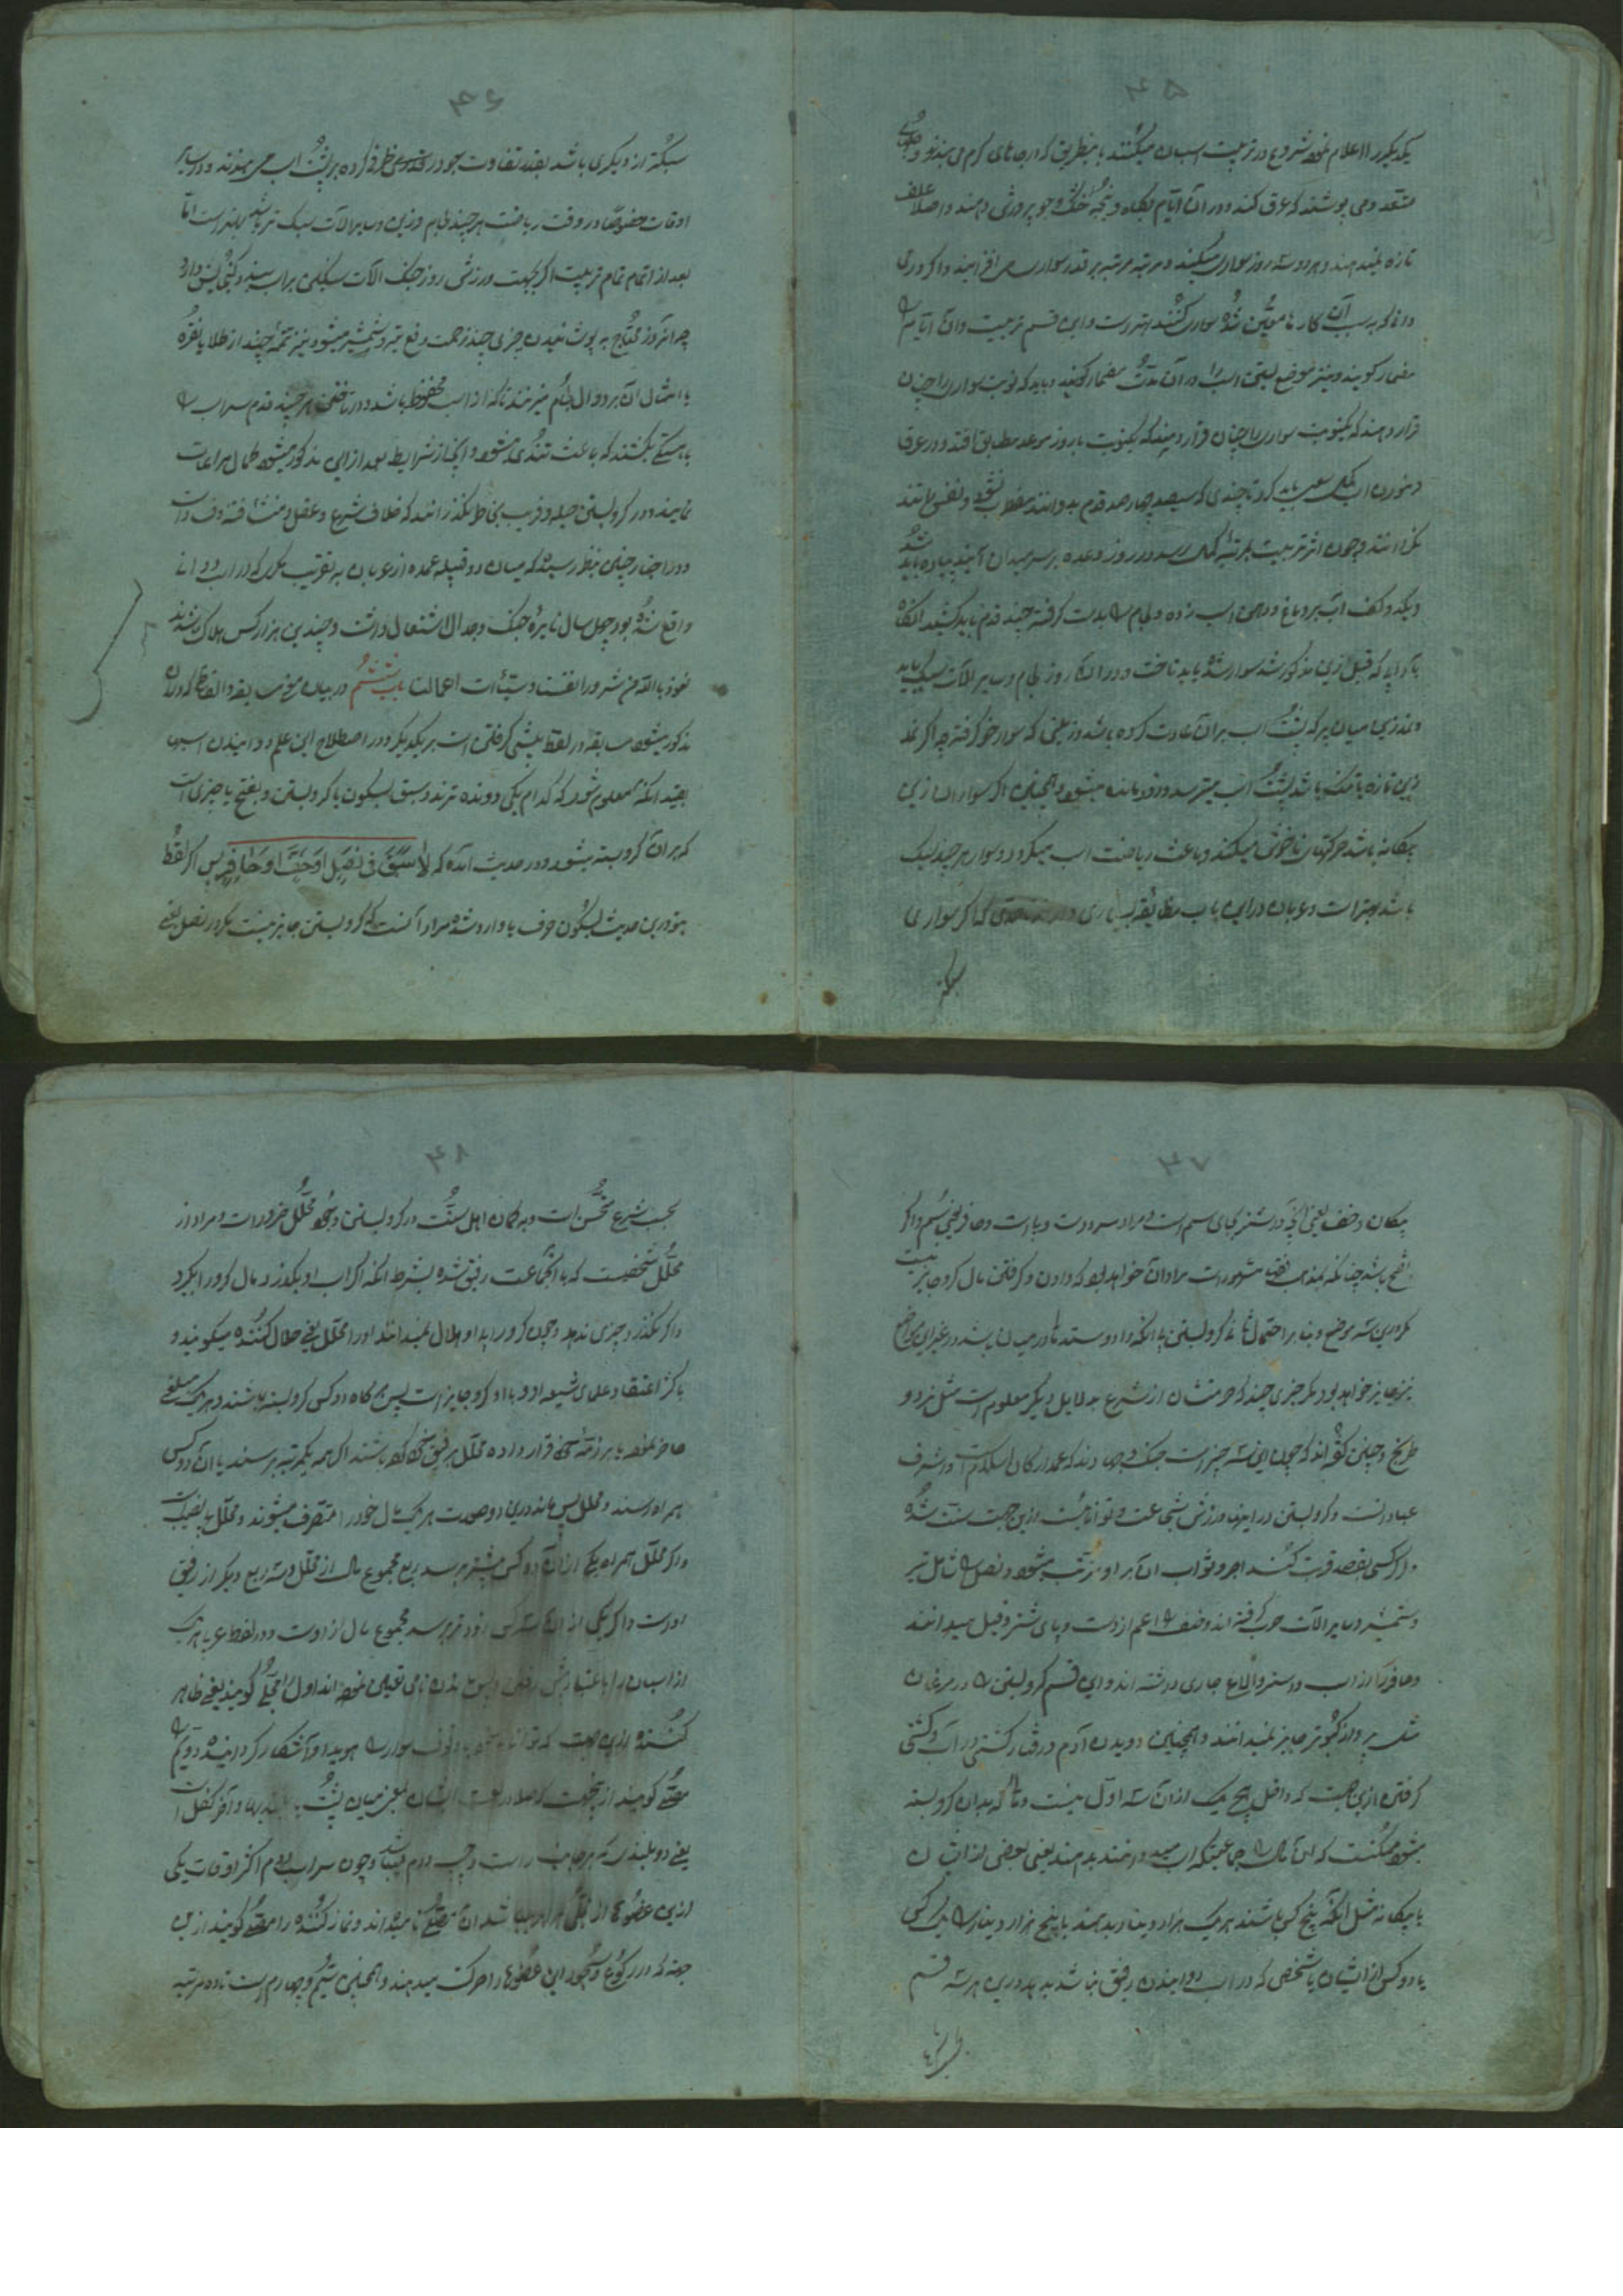 ۴۵
یکدیگر را اعلام نموده شروع در تربیت اسبان میکنند باینطریق که در جاهای گرم می بندند و جلهای
متعدد می پوشند که عرق کند و در آن ایام بکاه و پنجه خشک و جو پرورش دهند و اصلا علف
تازه نمیدهند و هر دو سه روز سواری میکنند و مرتبه مرتبه بر قدر سواری می افزایند و اگر مردی
دانا که به سبب آن کارها معین شده سواری کنند بهتر است و این قسم تربیت و آن ایام را
مضمار گویند و نیز موضع بستن اسب را در آن مدت مضمار گویند و باید که نوبت سواری را چنان
قرار دهند که یکنوبت سواری با روز موعد مطابق افتد و در عرق
کردن اسب سعی باید کرد تا چندی که سیصد چهار صد قدم بدوانند مضطرب نشود و نفس تند
نکند و چون اثر تربیت بمرتبه کمال رسد در روز وعده بر سر میدان آیند پیاده باید شد
و یکدو کف آب بر دماغ و دهن اسب زده و لجام را بدست گرفته چند قدم باید کشید آنگاه
بآدابی که قبل ازین مذکور شد سوار شده باید تاخت و در آن روز لجام و سایر آلات سبک باید
و نمد زین میان پر که پشت اسب بر آن عادت کرده باشد و زینی که سوار خو گرفته چه اگر نمد
زین تازه یا تنک باشد پشت اسب میترسد و فرومانده میشود و همچنین اگر سوار از زین
بیگانه باشد حرکتهای ناخوش میکند و باعث ریاضت اسب میگردد و سوار هر چند سبک
باشد بهتر است و عربان در این باب مضایقه بسیاری دارند تا حدی که اگر سواری
سبکتر
۴۶
سبکتر از دیگری باشد بقدر تفاوت جو در ظرفی کرده بر پشت اسب می بندند و در سایر
اوقات خصوصا در وقت ریاضت هر چند لجام و زین و سایر آلات سبک تر باشد بهتر است اما
بعد از اتمام تمام تربیت اگر بجهت ورزش روز جنگ آلات سنگین بر اسب بندد گنجایش دارد
چرا که آن روز محتاج به پوشانیدن چیزی چند زحمت دفع تیر و شمشیر میشود و نیز تکمه چند از طلا یا نقره
یا امثال آن بر دوال لجام میزنند تا که از اسب محفوظ باشد و در تاختن هر چند قدم سر اسب را
باهستگی بکشند که باعث تندی میشود و آنچه از شرایط بعد از این مذکور میشود کمال مراعات
نمایند و در گرو بستن حیله و فریب بخاطر نگذرانند که خلاف شرع و عقل و منشأ فتنه و فساد است
و در اخبار چنین بنظر رسیده که میان دو قبیله عمده از عربان به تقریب مکری که در اسب دوانی
واقع شده بود چهل سال نایره جنگ و جدال اشتعال داشت و چندین هزار کس هلاک شدند
نعوذ بالله من شرور انفسنا و سیئات اعمالنا باب ششم در بیان معنی مسابقه و الفاظی که در آن
مذکور میشود مسابقه در لغت پیشی گرفتن است بر یکدیگر و در اصطلاح این علم دوانیدن اسبان
بقید آنکه معلوم شود که کدام یکی دونده ترند و سبق بسکون با گرو بستن و بفتح با چیزی است
که بر آن گرو بسته میشود و در حدیث آمده که لا سبق فی نصل او خف او حافر پس اگر لفظ
سبق درین حدیث بسکون حرف با وارد شده مراد آنست که گرو بستن جایز نیست مگر در نصل یعنی
۴۷
پیکان و خف یعنی آنچه در شتر بجای سم است و مراد سر دست و پا است و حافر یعنی سم و اگر
بفتح باشد چنانکه بمذهب بعضی مشهور است مراد آن خواهد بود که دادن و گرفتن مال گرو جایز نیست
مگر درین سه موضع و بنا بر احتمال ثانی گرو بستن بی آنکه داد و ستد مال در میان باشد در غیر این مواضع
نیز جایز خواهد بود مگر چیزی چند که حرمتشان از شرع بدلایل دیگر معلوم است مثل نرد و
شطرنج و چنین گفته اند که چون این سه چیز است جنگ و جهادند که عمده ارکان اسلام و اشرف
عبادات است و گرو بستن در اینها ورزش شجاعت و توانائیست ازین جهت سنت شده
و اگر کسی بقصد قربت کند اجر و ثواب آن بر او مترتب میشود و نصل را شامل تیر
و شمشیر و سایر آلات حرب گرفته اند و خف را اعم از دست و پای شتر و فیل میدانند
و حافر را در اسب و استر و الاغ جاری داشته اند و این قسم گرو بستن را در مرغان
مثل پرواز کبوتر جایز نمیدانند و همچنین دویدن آدم و رفتار کشتی در آب و کشتی
گرفتن ازین جهت که داخل هیچ یک از آن سه اول نیست و مالی که بدان گرو بسته
میشود ممکنست که آن مال را جماعتیکه اسب میدوانند بدهند یعنی بعضی از ایشان
یا بیگانه مثل آنکه پنج کس باشند هر یک هزار دینار بدهند یا پنج هزار دینار را یک کس
یا دو کس از ایشان یا شخصی که در اسب دوانیدن رفیق نباشد بدهد درین هر سه قسم
۴۸
بحسب شرع مستحسن است و به گمان اهل سنت در گرو بستن وجود محلل ضرور است و مراد از
محلل شخصیست که با آنجماعت رفیق شده بشرط آنکه اگر اسب او بگذرد مال گرو را بگیرد
و اگر نگذرد چیزی ندهد و چون گرو را بی او حلال نمیدانند او را محلل یعنی حلال کننده میگویند و
باکثر اعتقاد علمای شیعه او و بی او گرو جایز است پس هر گاه دو کس گرو بسته باشند و هر یک مبلغی
حاضر نموده یا بر ذمه خود قرار داده محلل رفیق خود کرده باشند اگر همه بیکمرتبه برسند یا آن دو کس
همراه رسند و محلل پس ماند درین دو صورت هر یک مال خود را متصرف میشوند و محلل بی نصیب است
و اگر محلل همراه یکی از آن دو کس پیشتر برسد ربع مجموع مال از محلل و سه ربع دیگر از رفیق
اوست و اگر یکی از آن سه کس زودتر برسد مجموع مال از اوست و در لفظ عرب هر یک
از اسبان را باعتبار پیش رفتن و پس ماندن نامی تعیین نموده اند اول را مجلی گویند یعنی ظاهر
کننده ازین جهت که توانائی خود و وقوف سوار را هویدا و آشکار گردانیده دویم را
مصلی گویند از اینجهت که صلا در لغت ایشان میان پشت و آخر کفل است
یعنی دو بلندی که بر جانب راست و چپ دم میباشد و چون سر اسب دوم اکثر اوقات یکی
ازین عضوها از مجلی برابر میباشد آن را مصلی نامیده اند و نماز کننده را مصلی گویند ازین
جهت که در رکوع و سجود این عضوها را حرکت میدهند و همچنین سیم و چهارم است تا ده مرتبه